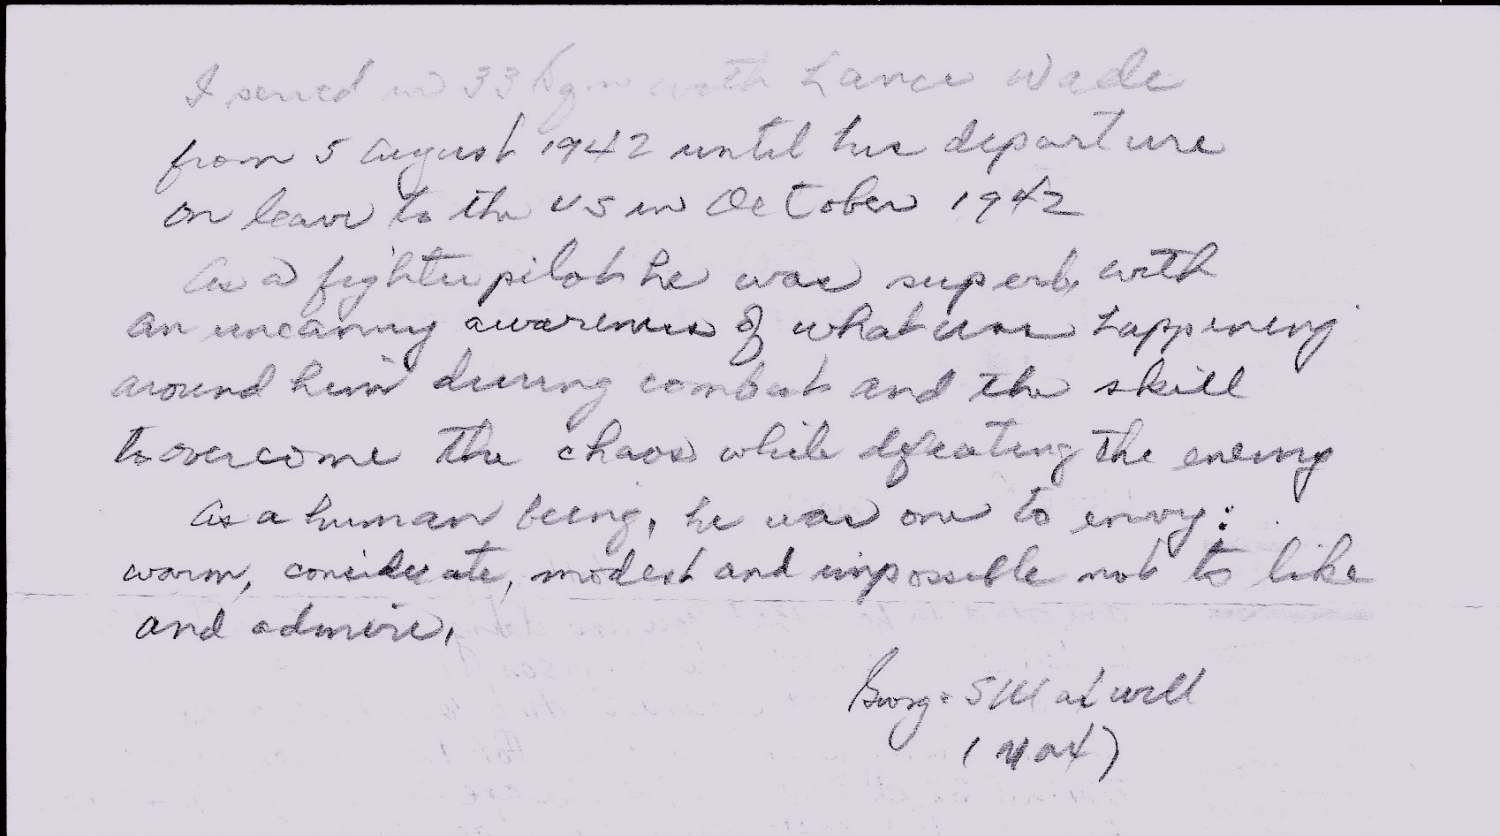 I served in 33 Sqn with Lance Wade
from 5 August 1942 until his departure
on leave to the US in October 1942
As a fighter pilot he was superb with
an uncanny awareness of what was happening
around him during combat and the skill
to overcome the chaos while defeating the enemy
As a human being, he was one to envy:
warm, considerate, modest and impossible not to like
and admire.
George S Maxwell
(Max)